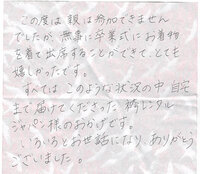 この度は、親は参加できません
でしたが、無事に卒業式にお着物
を着て出席することができて、とても
嬉しかったです。
すべては、このような状況の中、自宅
まで届けてくださった㈱レンタル
ジャパン様のおかげです。
いろいろとお世話になり、ありがとう
ございました。